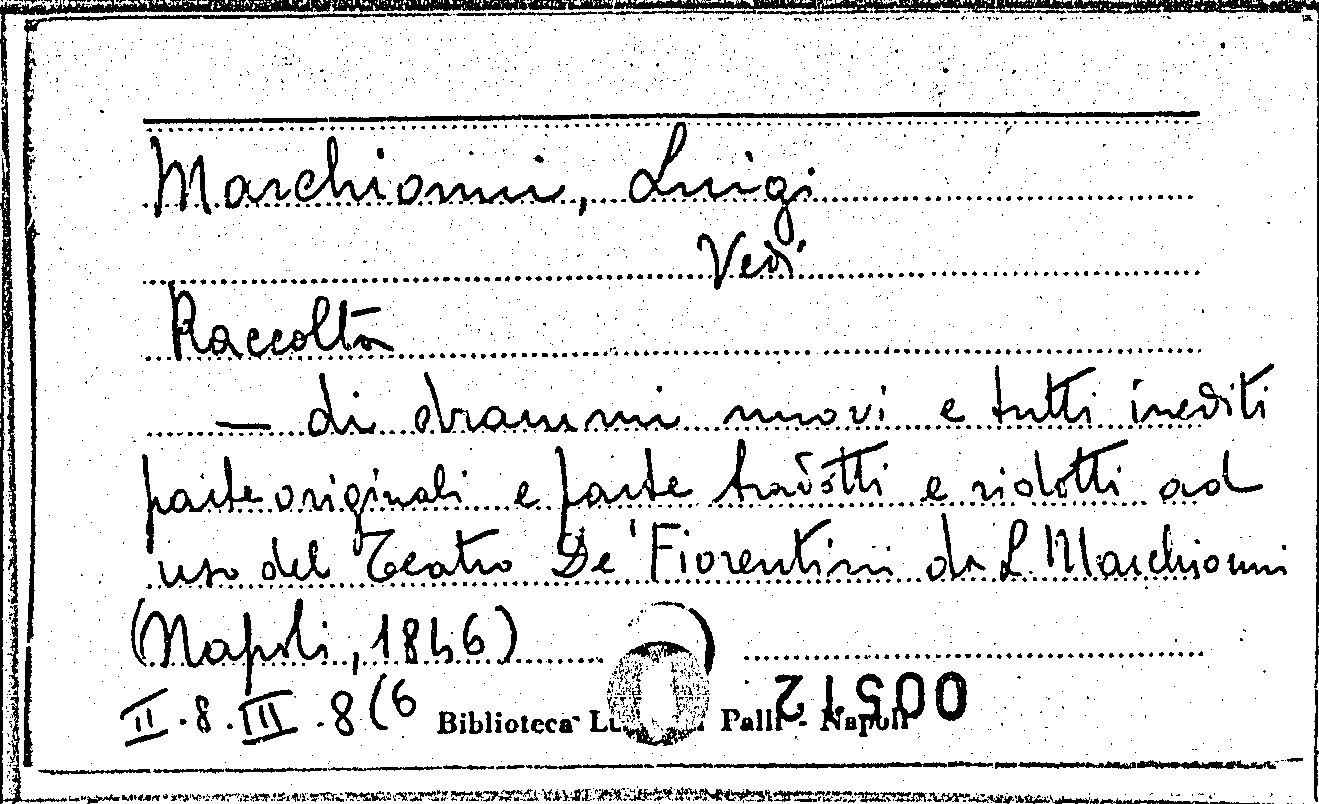 Marchionni, Luigi
Vedi
Raccolta
— di drammi nuovi e tutti inediti
parte originali e parte tradotti e ridotti ad
uso del Teatro De' Fiorentini da L. Marchionni
(Napoli, 1846)
II.8.III.8(6
Biblioteca Palli - Napoli
00512